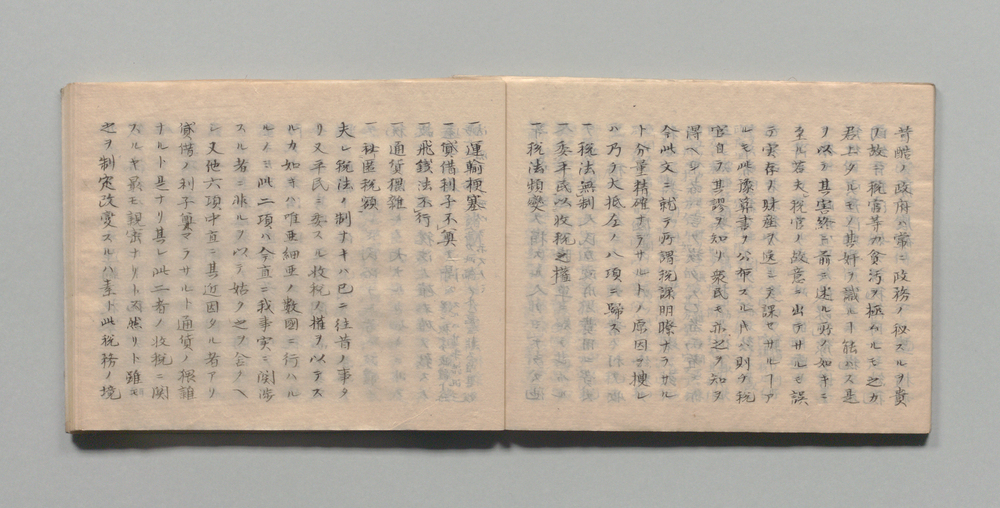 昔時ノ政府ハ常ニ政務ノ秘スルヲ貴
ノ故ニ税官等カ貪汚ヲ極ムルモ之カ
君上タルモノ其奸ヲ識ルヿ能ハス是
ヲ以テ其害終ニ前ニ述ル所ノ如キニ
至ル若夫税官ノ故意ニ出テサルモ誤
テ実存ノ財産ヲ逐ヒテ課セサルヿア
ルモ此豫算書ヲ公布スル片ハ則チ税
官自ラ其謬ヲ知リ衆民モ亦之ヲ知ヲ
得ヘシ
今此文ニ就テ所謂税課明瞭ナラサル
ト分量精確ナラサルトノ原因ヲ捜レ
ハ乃チ大抵左ノ八項ニ歸ス
一税法無制
一委平民以收税之權
一税法頻變
一運輸梗塞
一貸借利子不算
一飛銭法不行
一通貨猥雑
一社區税額
夫レ税法ノ制ナキハ已ニ往昔ノ事タ
リ又平民ニ委スル收税ノ權ヲ以テス
ルカ如キハ唯亜細亜ノ數國ニ行ハル
ルノミ此二項ハ今直ニ我事実ニ関渉
スル者ニ非ルヲ以テ姑ク之ヲ舎ノヘ
シ又他六項中直ニ其近因タル者アリ
貸借ノ利子算マラサルト通貨ノ猥雑
ナルト是ナリ其レ此二者ノ收税ニ関
スルヤ最モ親密ナリトス然リト雖ﾓ
之ヲ制定改変スルハ素ト此税務ノ境